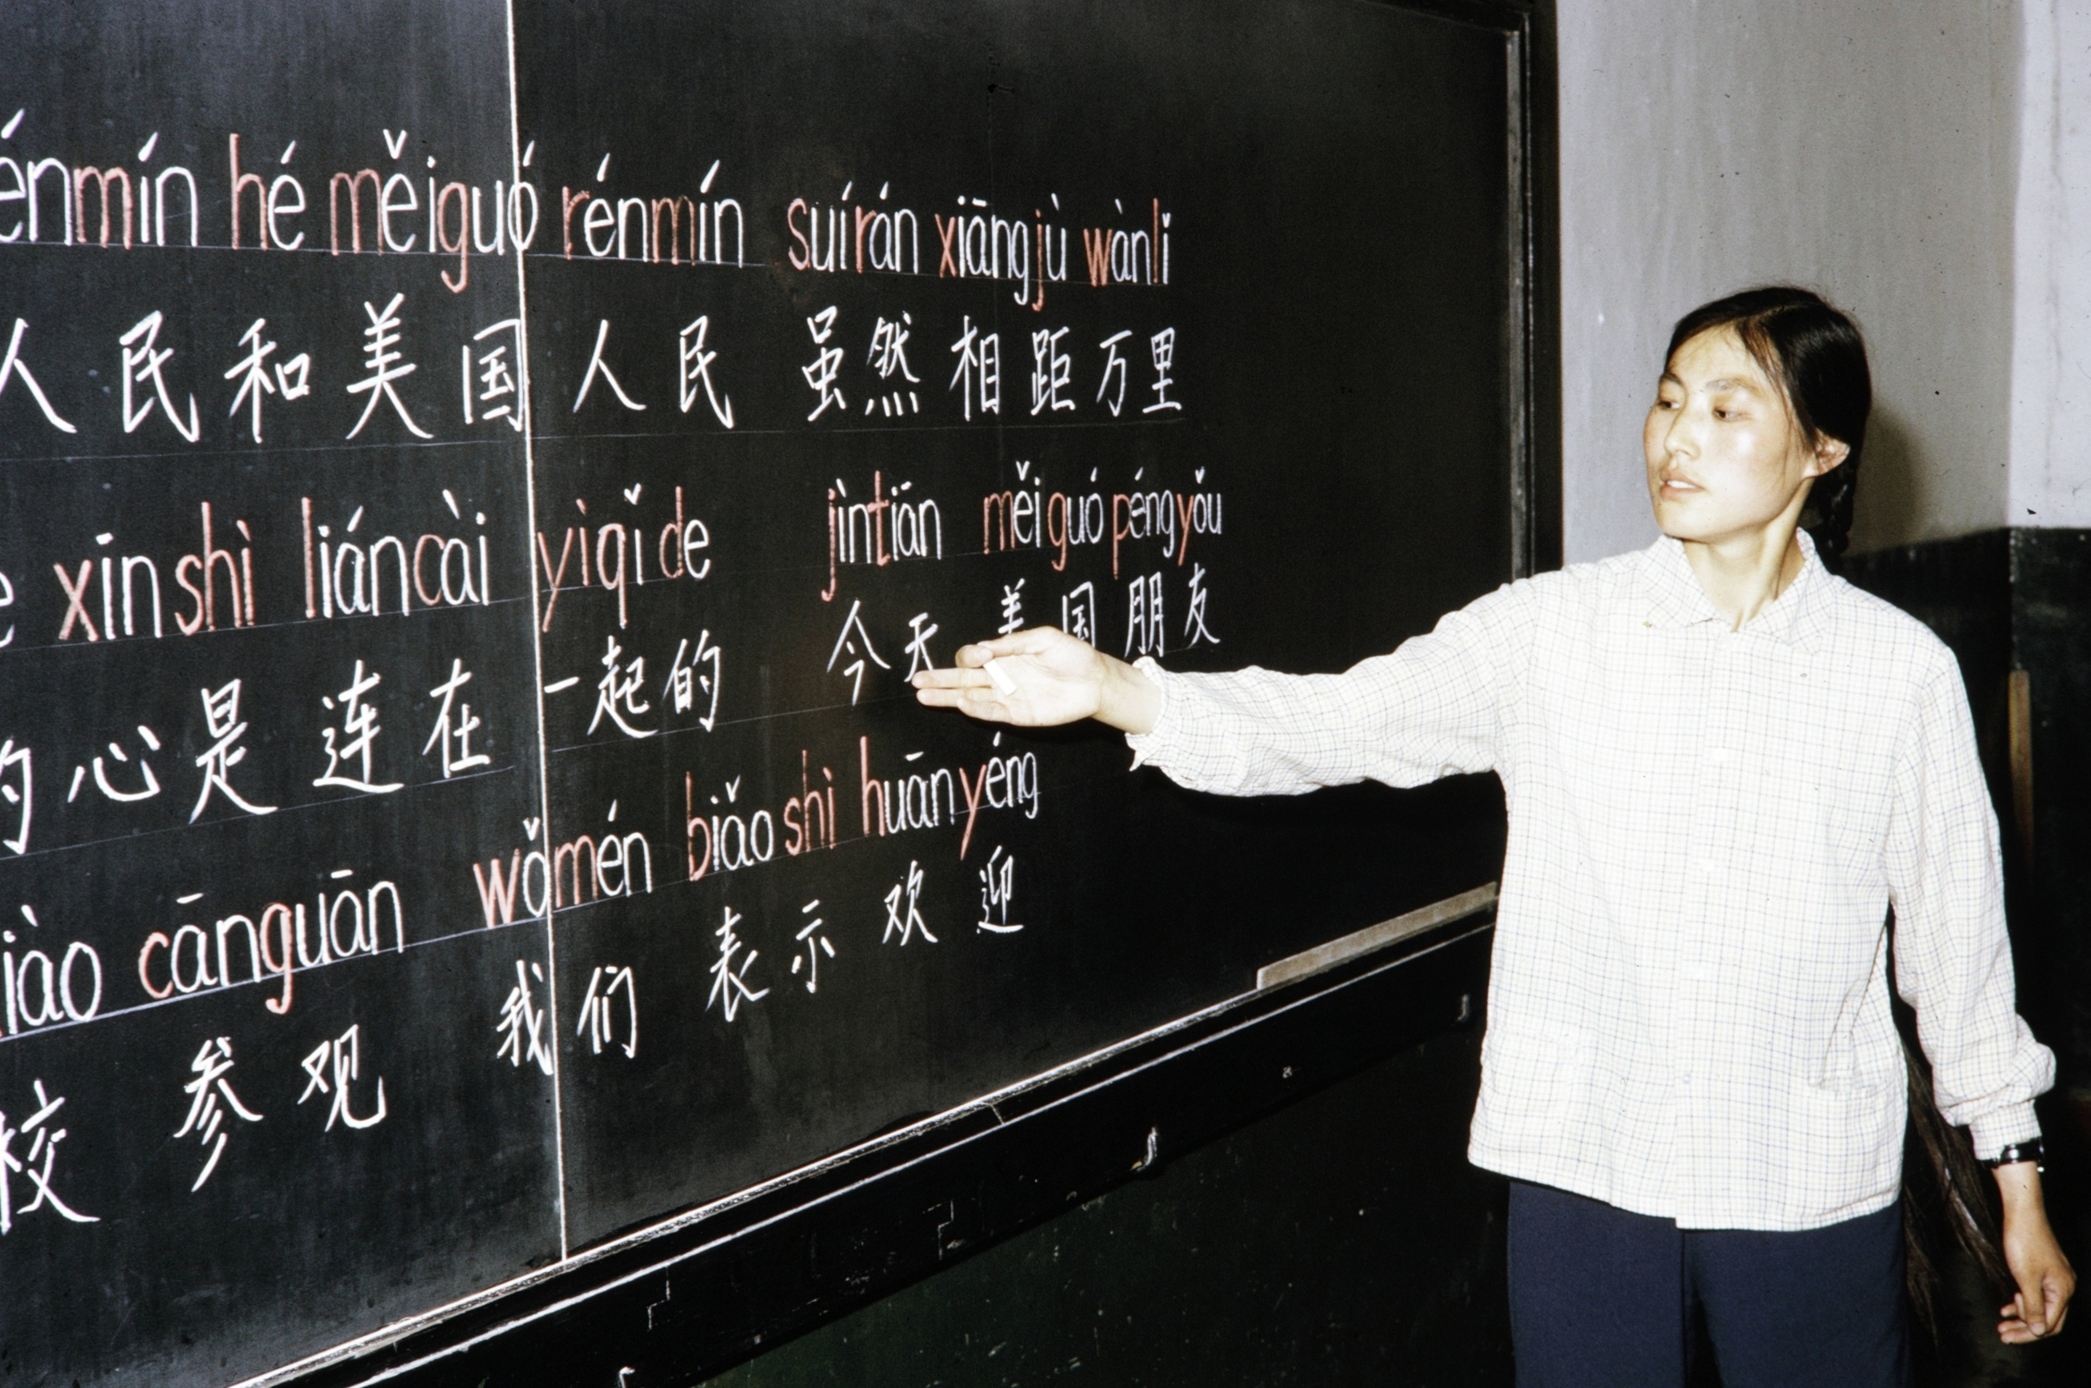 énmín hé měiguó rénmín suírán xiāngjù wànli
人民和美国人民 虽然相距万里
e xīnshì liáncài yìqǐde jìntiān měiguó péngyǒu
的心是连在一起的 今天美国朋友
iào cānguān wǒmén biǎoshì huānyéng
校 参观 我们 表示 欢迎